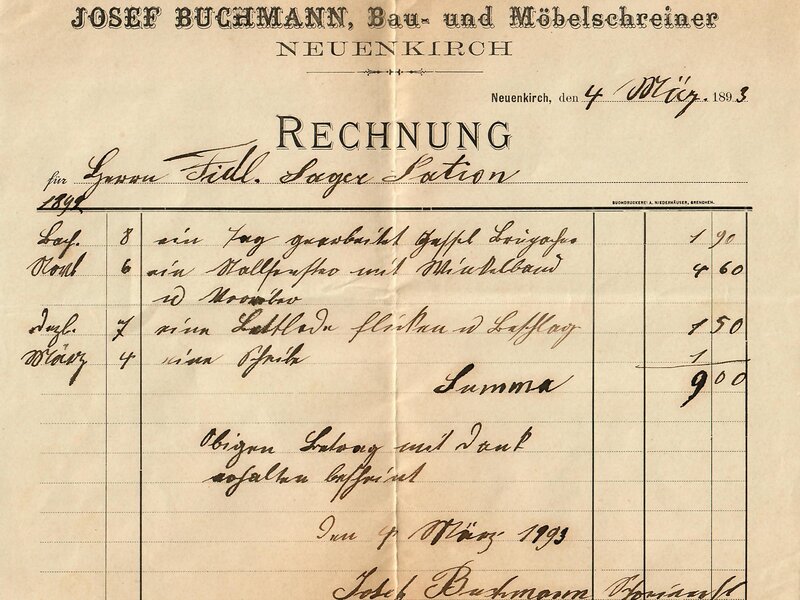 JOSEF BUCHMANN, Bau- und Möbelschreiner
NEUENKIRCH
Neuenkirch, den 4 März. 1893
RECHNUNG
für Herrn Fidl. Sager Sation
BUCHDRUCKEREI A. NIEDERHÄUSER, GRENCHEN.
1892
8 ein Tag gearbeitet 1 90
Novb 6 ein Stallfenster mit Winkelband 4 60
u Vorreiber
Dezb. 7 eine Bettlade flicken u Beschlag 1 50
März 4 eine Scheibe 1
Summa 9 00
Obigen Betrag mit Dank
erhalten bescheint
Den 4 März 1993
Josef Buchmann